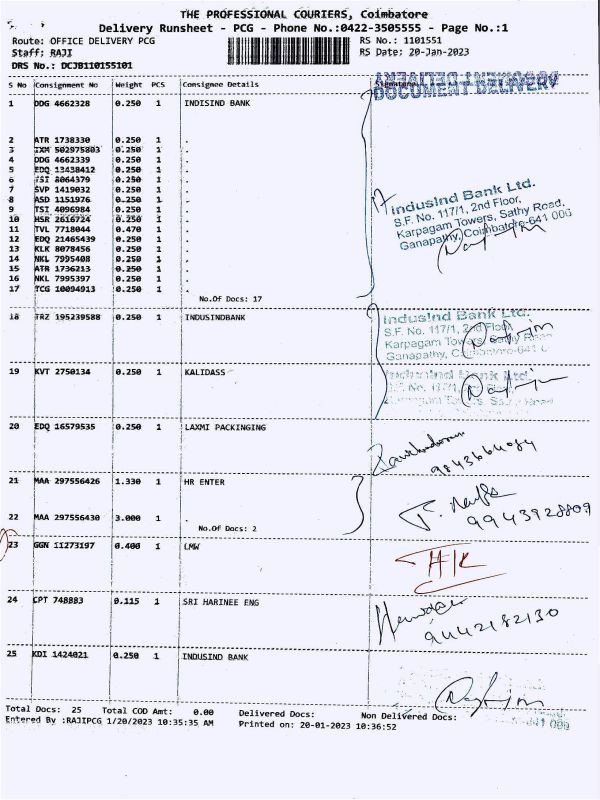 THE PROFESSIONAL COURIERS, Coimbatore
Delivery Runsheet - PCG - Phone No.:0422-3505555 - Page No.:1
Route: OFFICE DELIVERY PCG RS No.: 1101551
Staff: RAJI RS Date: 20-Jan-2023
DRS No.: DCJB110155101
S No Consignment No Weight PCS Consignee Details
DOCUMENT DELIVERY
1 DDG 4662328 0.250 1 INDISIND BANK
2 ATR 1738330 0.250 1 .
3 IXM 502975803 0.250 1 .
4 DDG 4662339 0.250 1 .
5 EDQ 13438412 0.250 1 .
6 TSI 8064379 0.250 1 .
7 SVP 1419032 0.250 1 .
8 ASD 1151976 0.250 1 .
9 TSI 4096984 0.250 1 .
10 HSR 2616724 0.250 1 .
11 TVL 7718044 0.470 1 .
12 EDQ 21465439 0.250 1 .
13 KLK 8078456 0.250 1 .
14 NKL 7995408 0.250 1 .
15 ATR 1736213 0.250 1 .
16 NKL 7995397 0.250 1 .
17 TCG 10094913 0.250 1 .
17
IndusInd Bank Ltd.
S.F. No. 117/1, 2nd Floor,
Karpagam Towers, Sathy Road,
Ganapathy, Coimbatore-641 006
No.Of Docs: 17
18 TRZ 195239588 0.250 1 INDUSINDBANK
IndusInd Bank Ltd.
S.F. No. 117/1, 2nd Floor,
Karpagam Towers, Sathy Road
Ganapathy, Coimbatore-641
19 KVT 2750134 0.250 1 KALIDASS
IndusInd Bank Ltd.
S.F. No. 117/1, 2nd Floor,
20 EDQ 16579535 0.250 1 LAXMI PACKINGING
21 MAA 297556426 1.330 1 HR ENTER
22 MAA 297556430 3.000 1 .
9943928809
No.Of Docs: 2
23 GGN 11273197 0.400 1 LMW
24 CPT 748883 0.115 1 SRI HARINEE ENG
9442182130
25 KDI 1424021 0.250 1 INDUSIND BANK
Total Docs: 25 Total COD Amt: 0.00 Delivered Docs: Non Delivered Docs:
Entered By :RAJIPCG 1/20/2023 10:35:35 AM Printed on: 20-01-2023 10:36:52